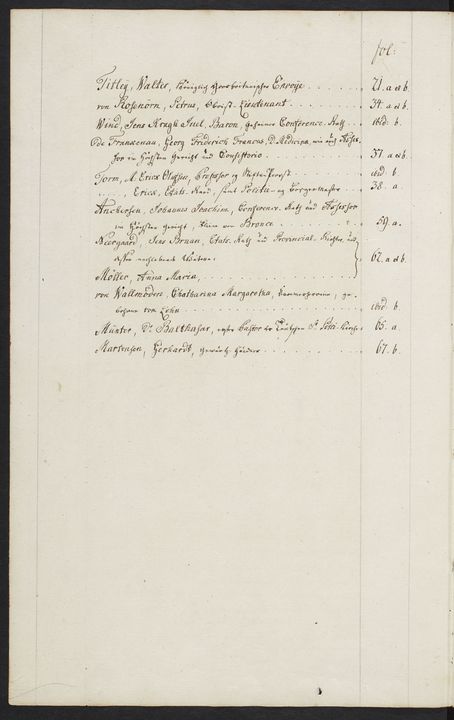 fol:
Titley, Walter, Königlich Envoye . . . . . . 21. a et b.
von Rosenörn, Petrus, Obrist-Lieutenant . . . . . . 34. a et b.
Wind, Jens Kragh Juel, Baron, geheimer Conference-Rath . . . ibid. b.
de Franckenau, Georg Friderich Francus, D. Medicinæ, wie auch Assessor
im höchsten Gericht und Consistorio . . . . . . 37. a et b.
Torm, M. Erica Olufsen, Professor og Stifts-Provst . . . ibid b.
. . . . . , Erica, Etats-Raad, samt Politie- og Borgermester . . 38. a.
Anchersen, Johannes Joachim, Conferenz-Rath und Assessor
im höchsten Gericht, . . . . 59. a.
Neergaard, Jens Bruun, Etats-Rath und Provincial-Richter, und
dessen nachlebende Wittwe.
62. a et b.
Möller, Anna Maria, . . . . . .
von Wallmoden, Chatharina Margaretha, ge-
bohrne von . . . . . . ibid b.
Münter, Dr. Balthasar, erster Pastor der Teutschen St. Petri Kirche 65. a.
Martensen, Gerhardt, . . . . . . 67. b.